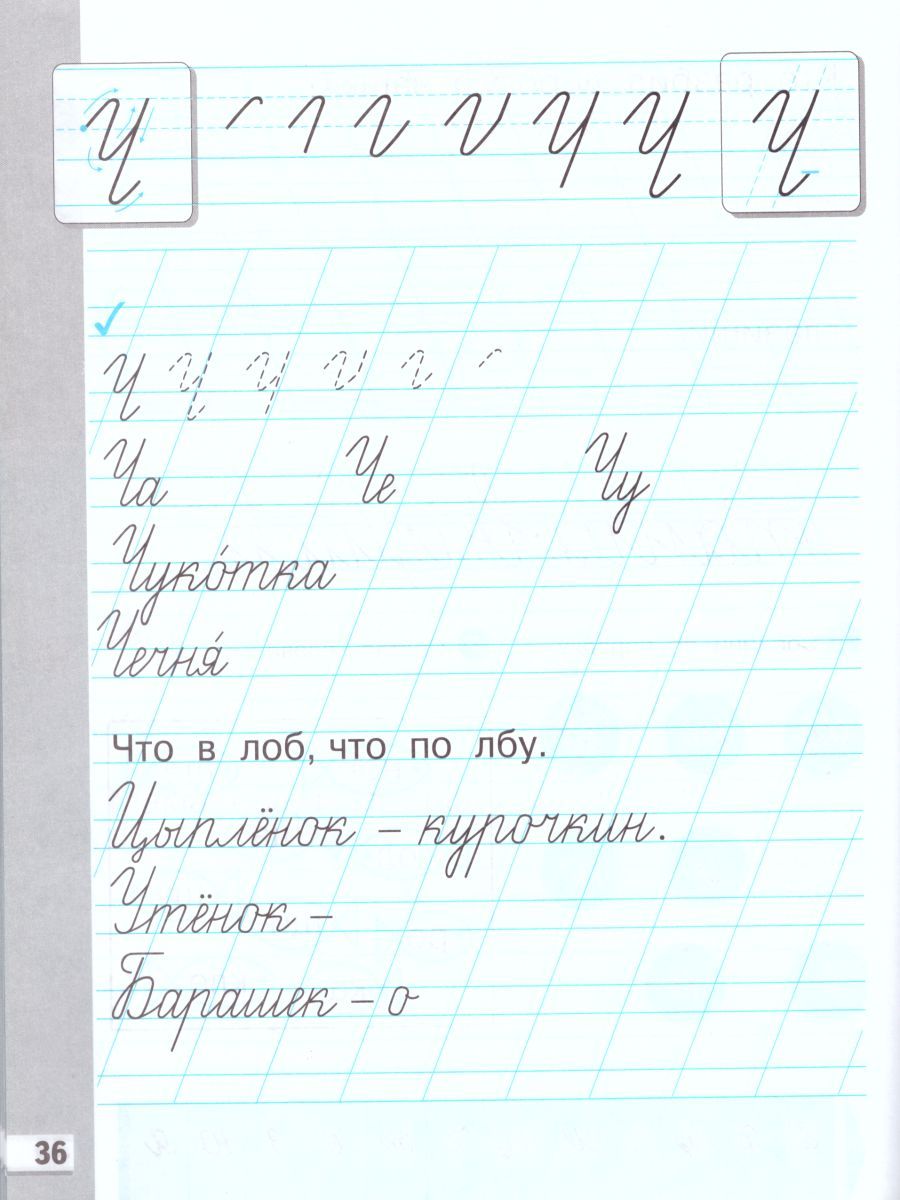 Ч Ч Ч
Ч Ч Ч
Ча Че Чу
Чуко́тка
Чечня́
Что в лоб, что по лбу.
Цыплёнок – курочкин.
Утёнок –
Барашек – о
36